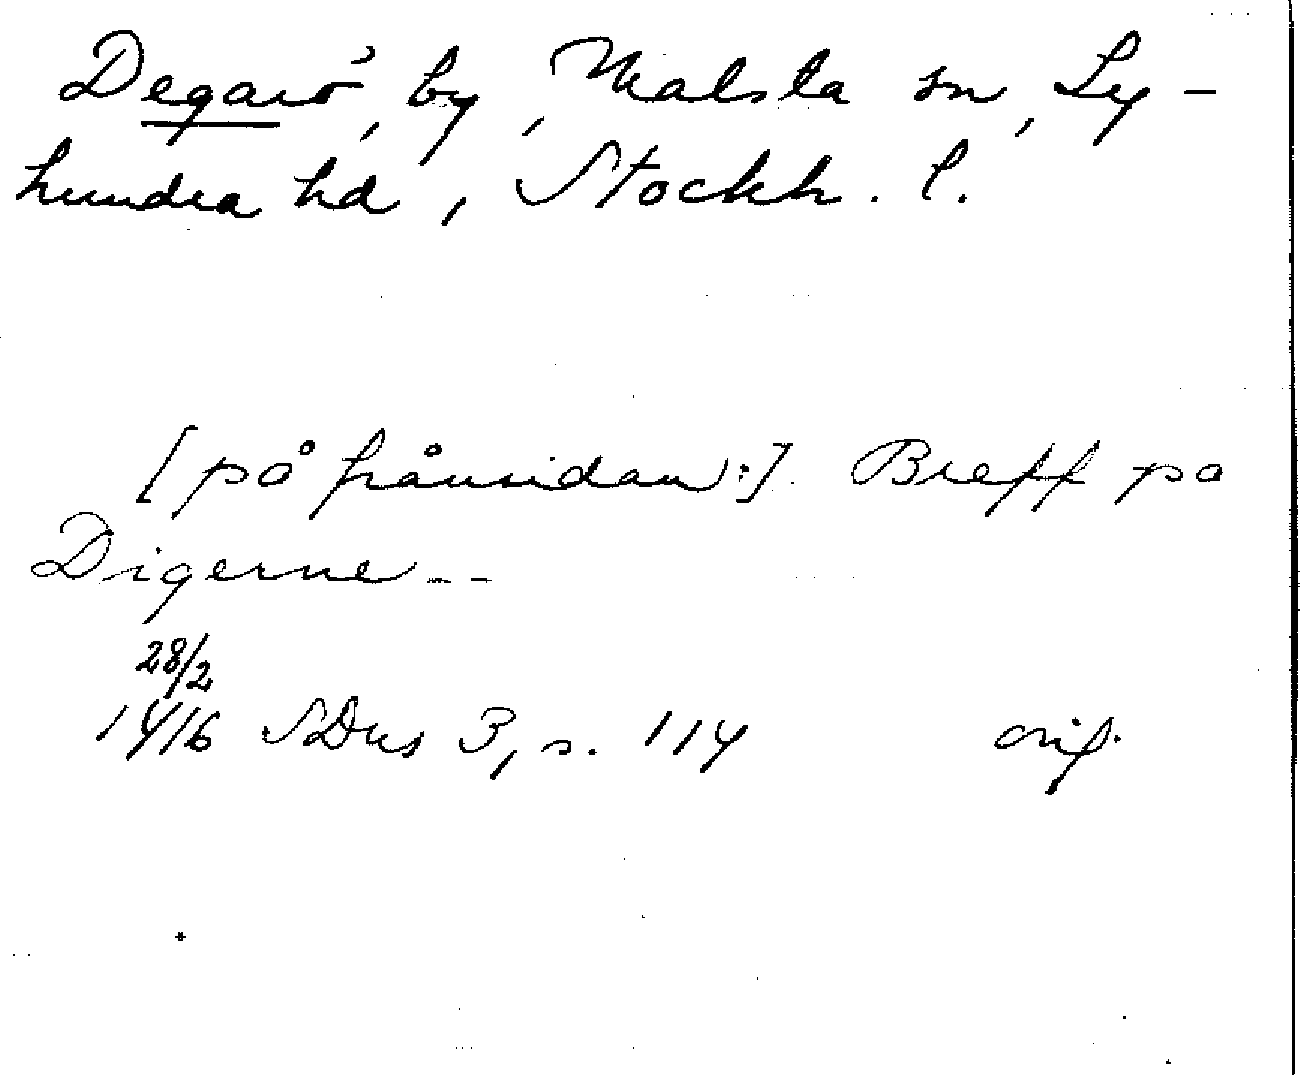 Degarö, by, Malsta sn, Ly-
hundra hd, Stockh. l.
[på frånsidan:]. Breff pa
Digerne--
28/2
1416 SDns 3, s. 114 orig.